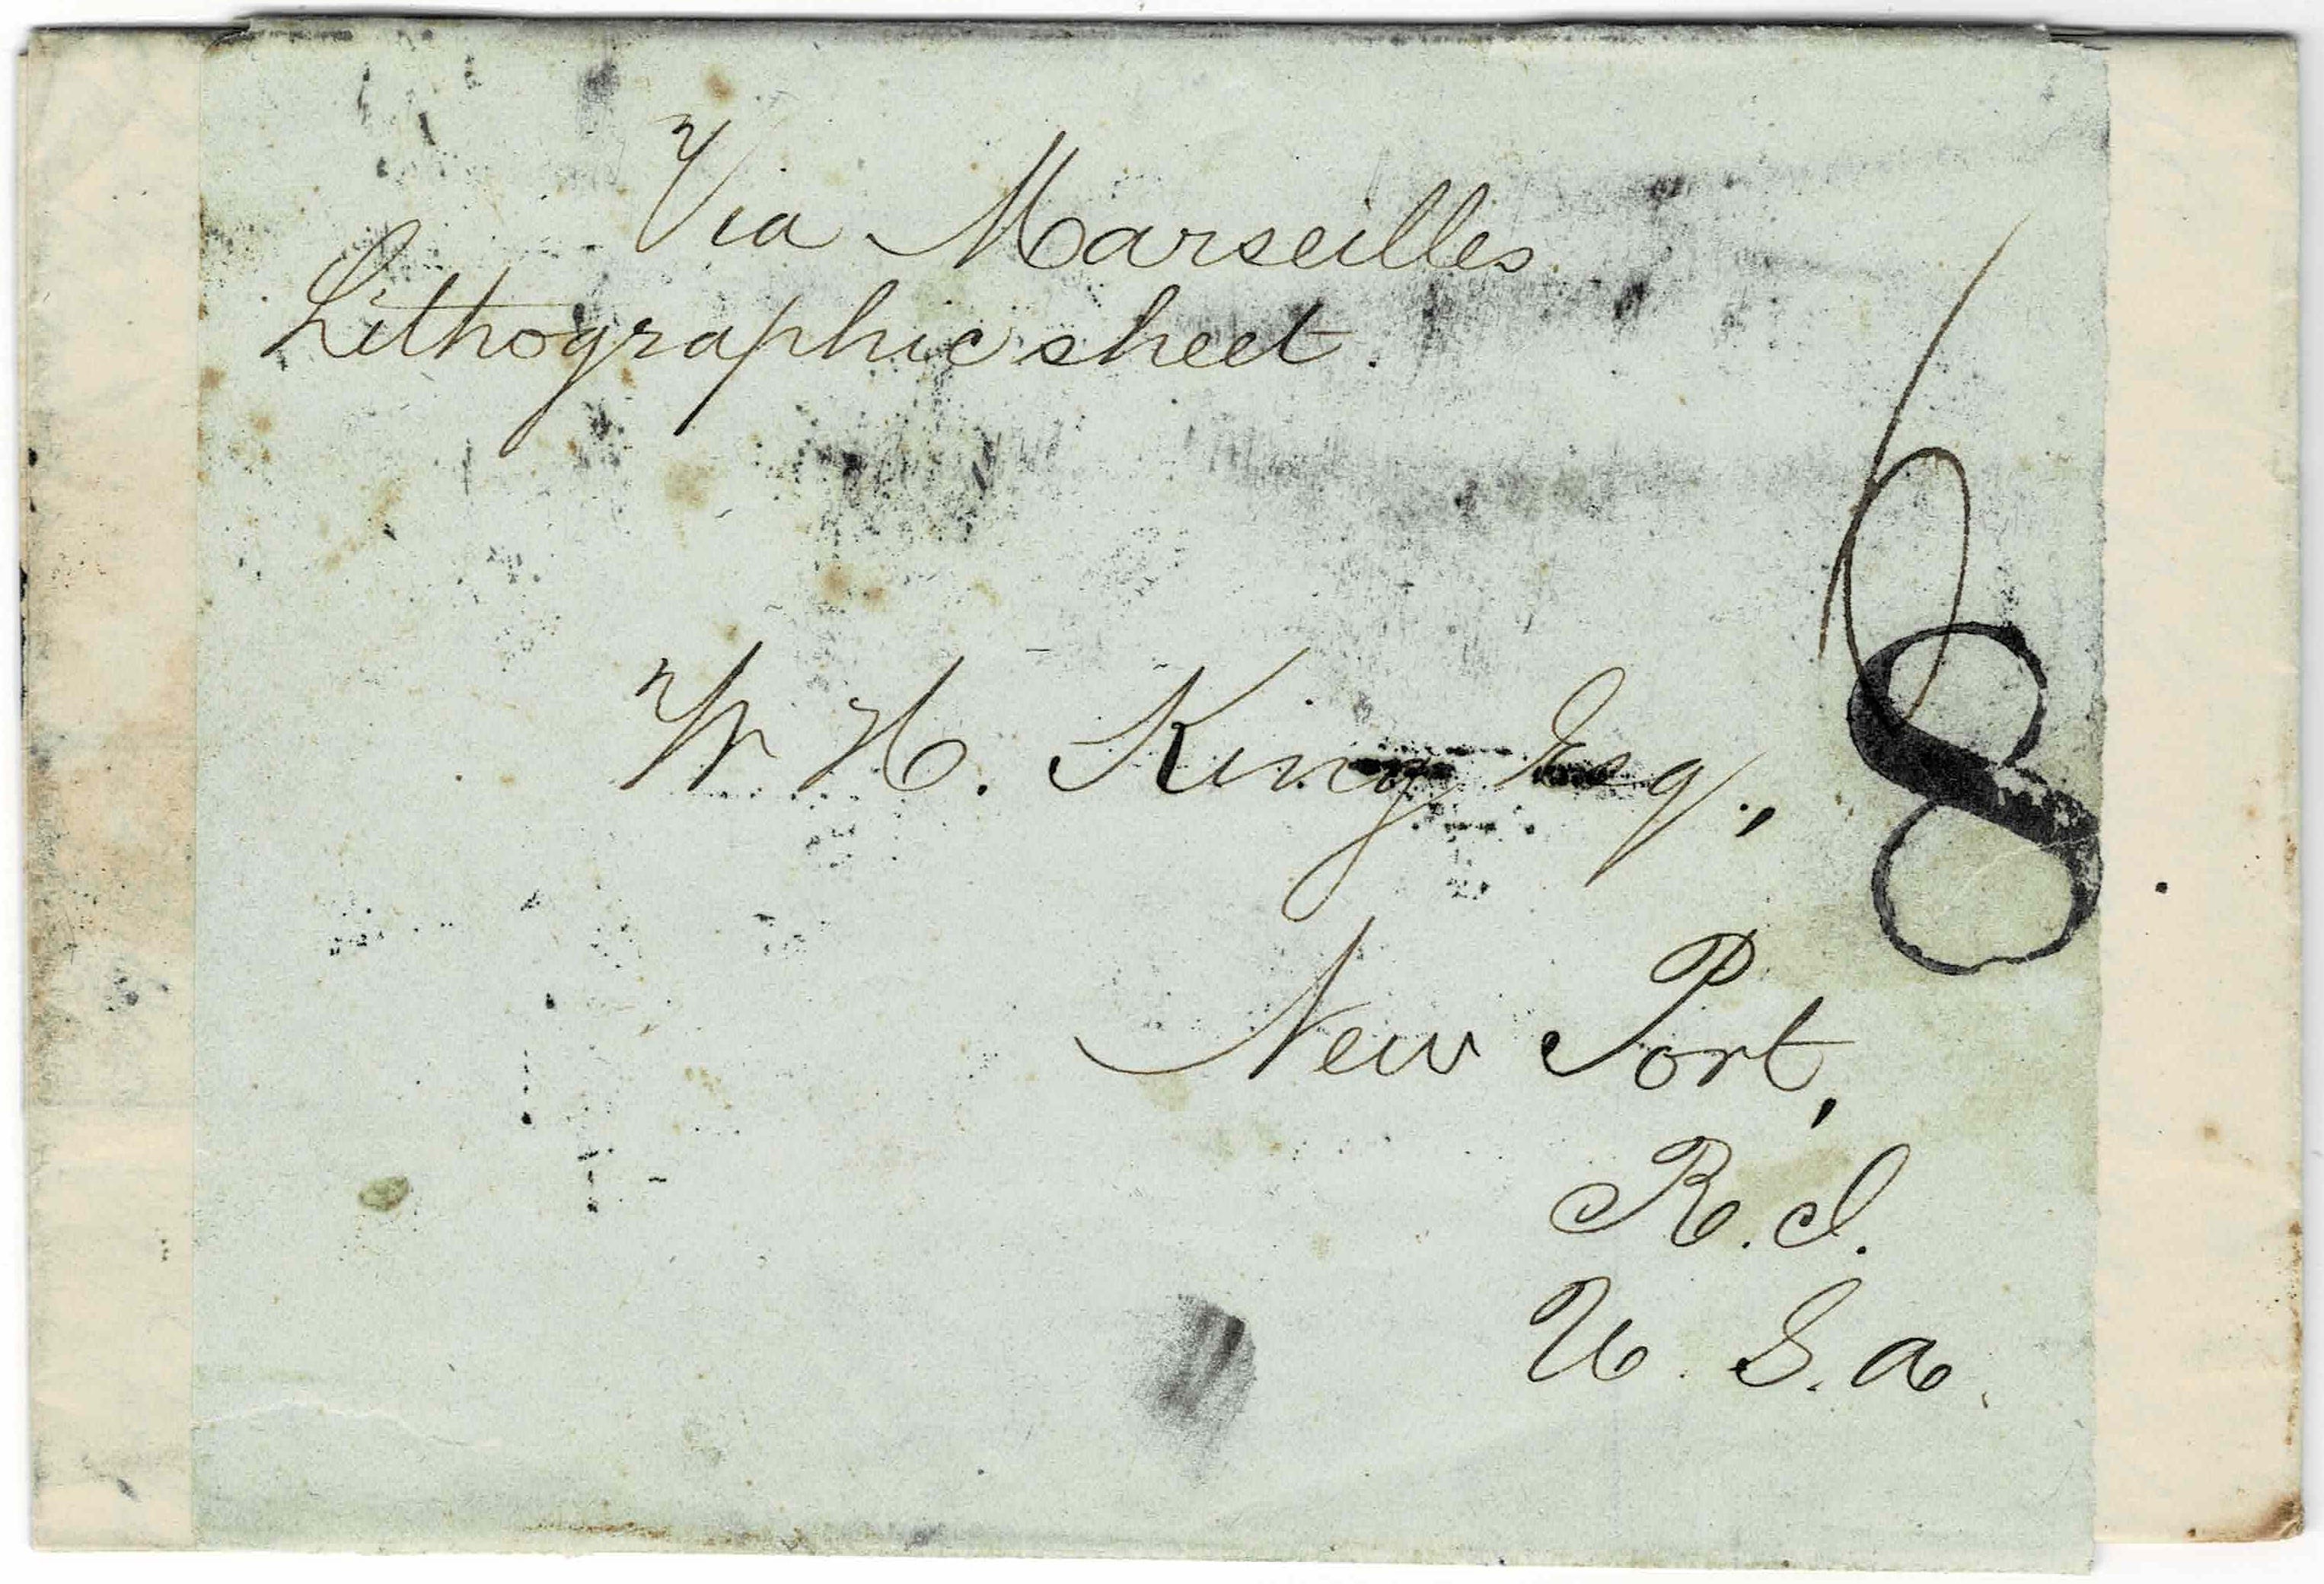 Via Marseilles
Lithographic sheet.
6
W. H. King Esq.,
8
New Port,
R. I.
U. S. A.